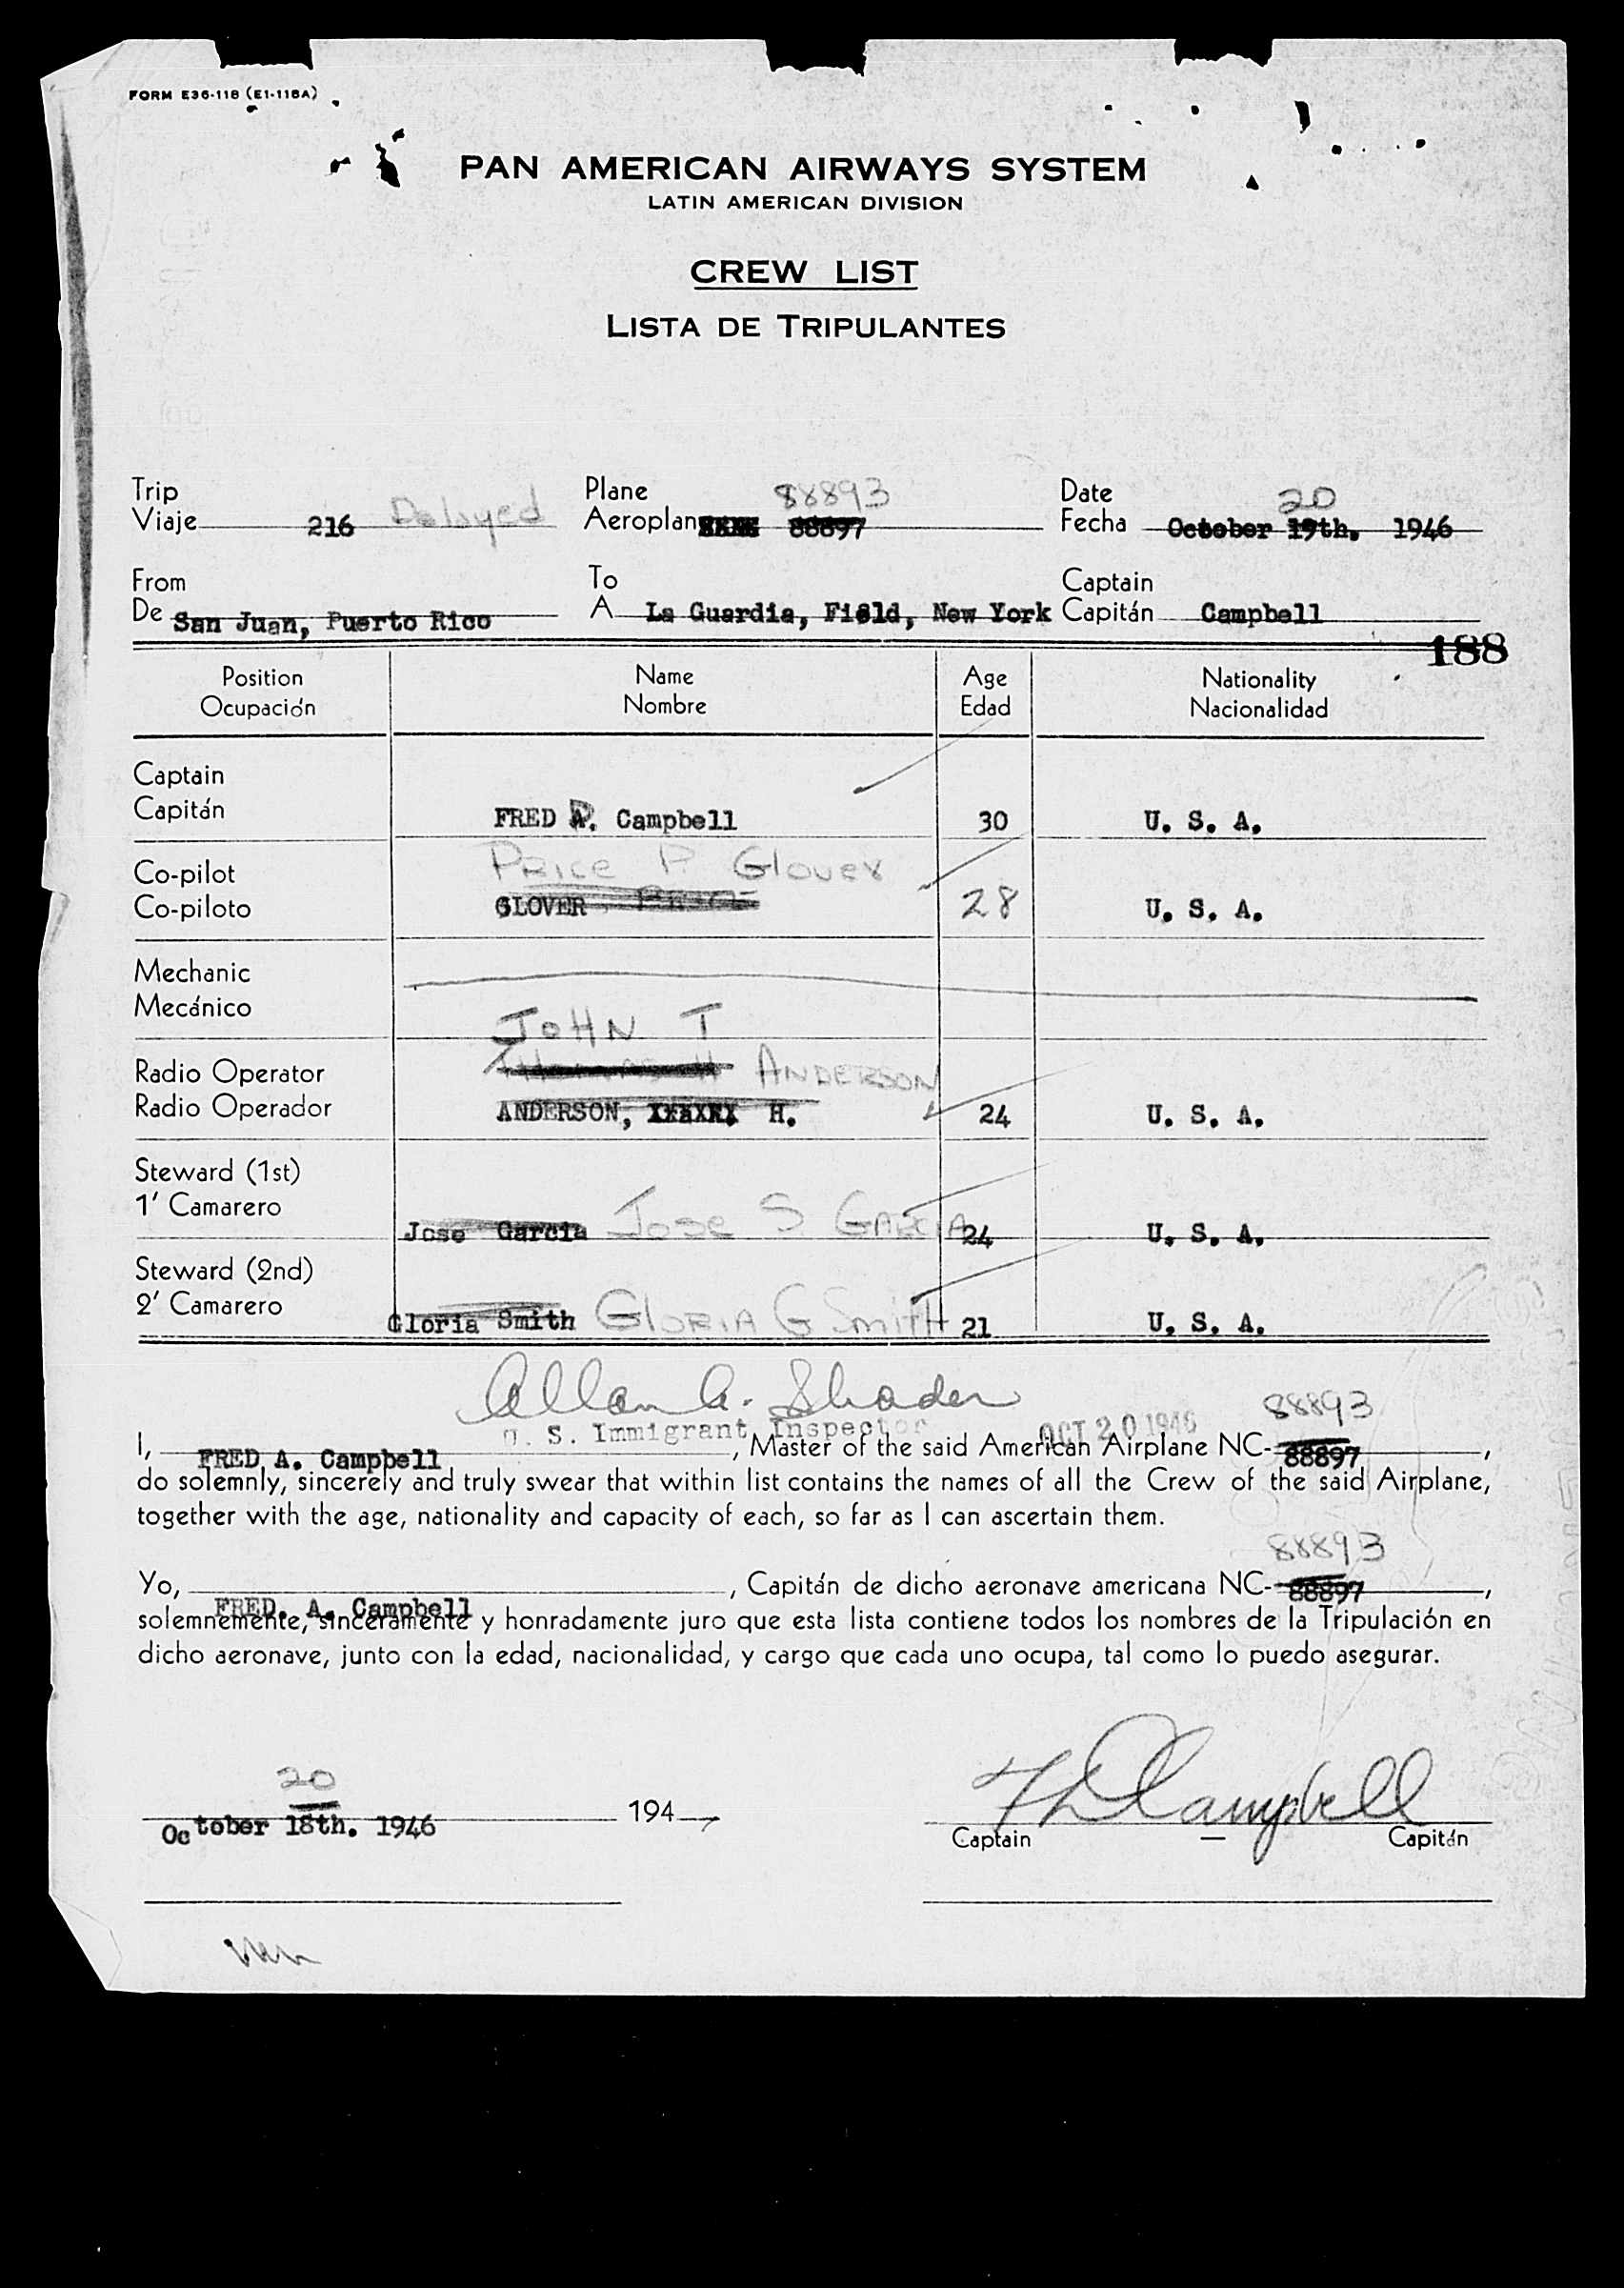 FORM E36-118 (E1-118A)
PAN AMERICAN AIRWAYS SYSTEM
LATIN AMERICAN DIVISION
CREW LIST
LISTA DE TRIPULANTES
Trip Plane 88893 Date 20
Viaje 216 Delayed Aeroplano 88897 Fecha October 19th. 1946
From To Captain
De San Juan, Puerto Rico A La Guardia, Field, New York Capitán Campbell
188
Position Name Age Nationality
Ocupación Nombre Edad Nacionalidad
Captain
Capitán FRED Campbell 30 U. S. A.
Co-pilot PRICE P. Glover
Co-piloto GLOVER 28 U. S. A.
Mechanic
Mecánico
JOHN T
Radio Operator ANDERSON
Radio Operador ANDERSON, H. 24 U. S. A.
Steward (1st)
1' Camarero Jose Garcia Jose S GARCIA 24 U. S. A.
Steward (2nd)
2' Camarero Gloria Smith GLORIA G Smith 21 U. S. A.
Allan A. Shader 88893
U. S. Immigrant Inspector OCT 20 1946
I, FRED A. Campbell, Master of the said American Airplane NC-88897,
do solemnly, sincerely and truly swear that within list contains the names of all the Crew of the said Airplane,
together with the age, nationality and capacity of each, so far as I can ascertain them.
88893
Yo, , Capitán de dicho aeronave americana NC-88897,
FRED. A. Campbell
solemnemente, sinceramente y honradamente juro que esta lista contiene todos los nombres de la Tripulación en
dicho aeronave, junto con la edad, nacionalidad, y cargo que cada uno ocupa, tal como lo puedo asegurar.
20
October 18th. 1946 194 F D Campbell
Captain Capitán